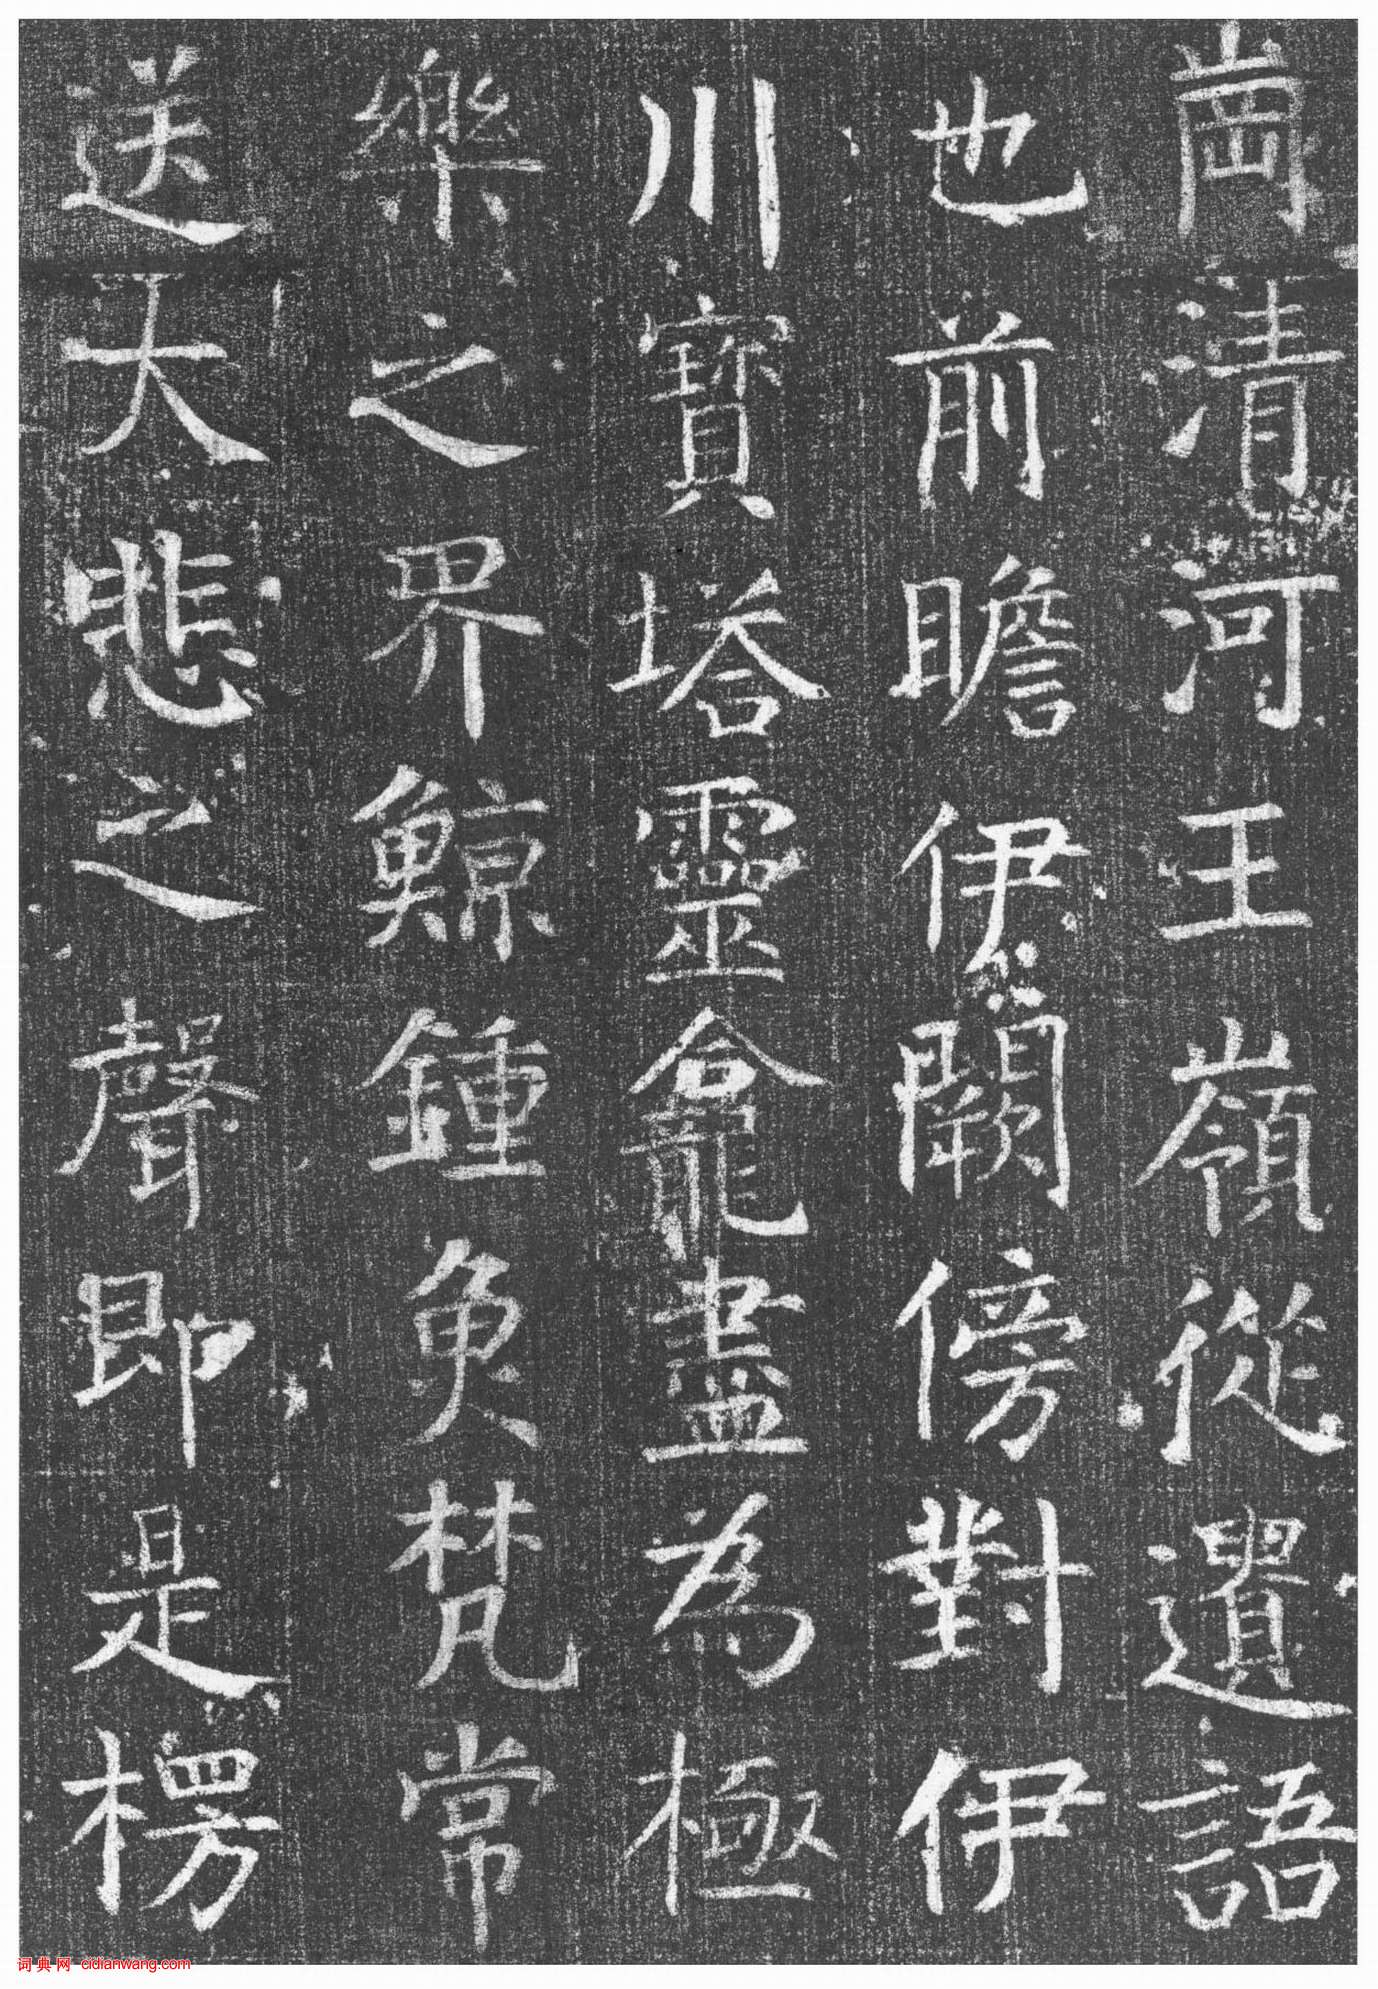 崗清河王嶺從遺語
也前瞻伊闕傍對伊
川寶塔靈龕盡為極
樂之界鯨鍾魚梵常
送大悲之聲即是楞
词典网 cidianwang.com